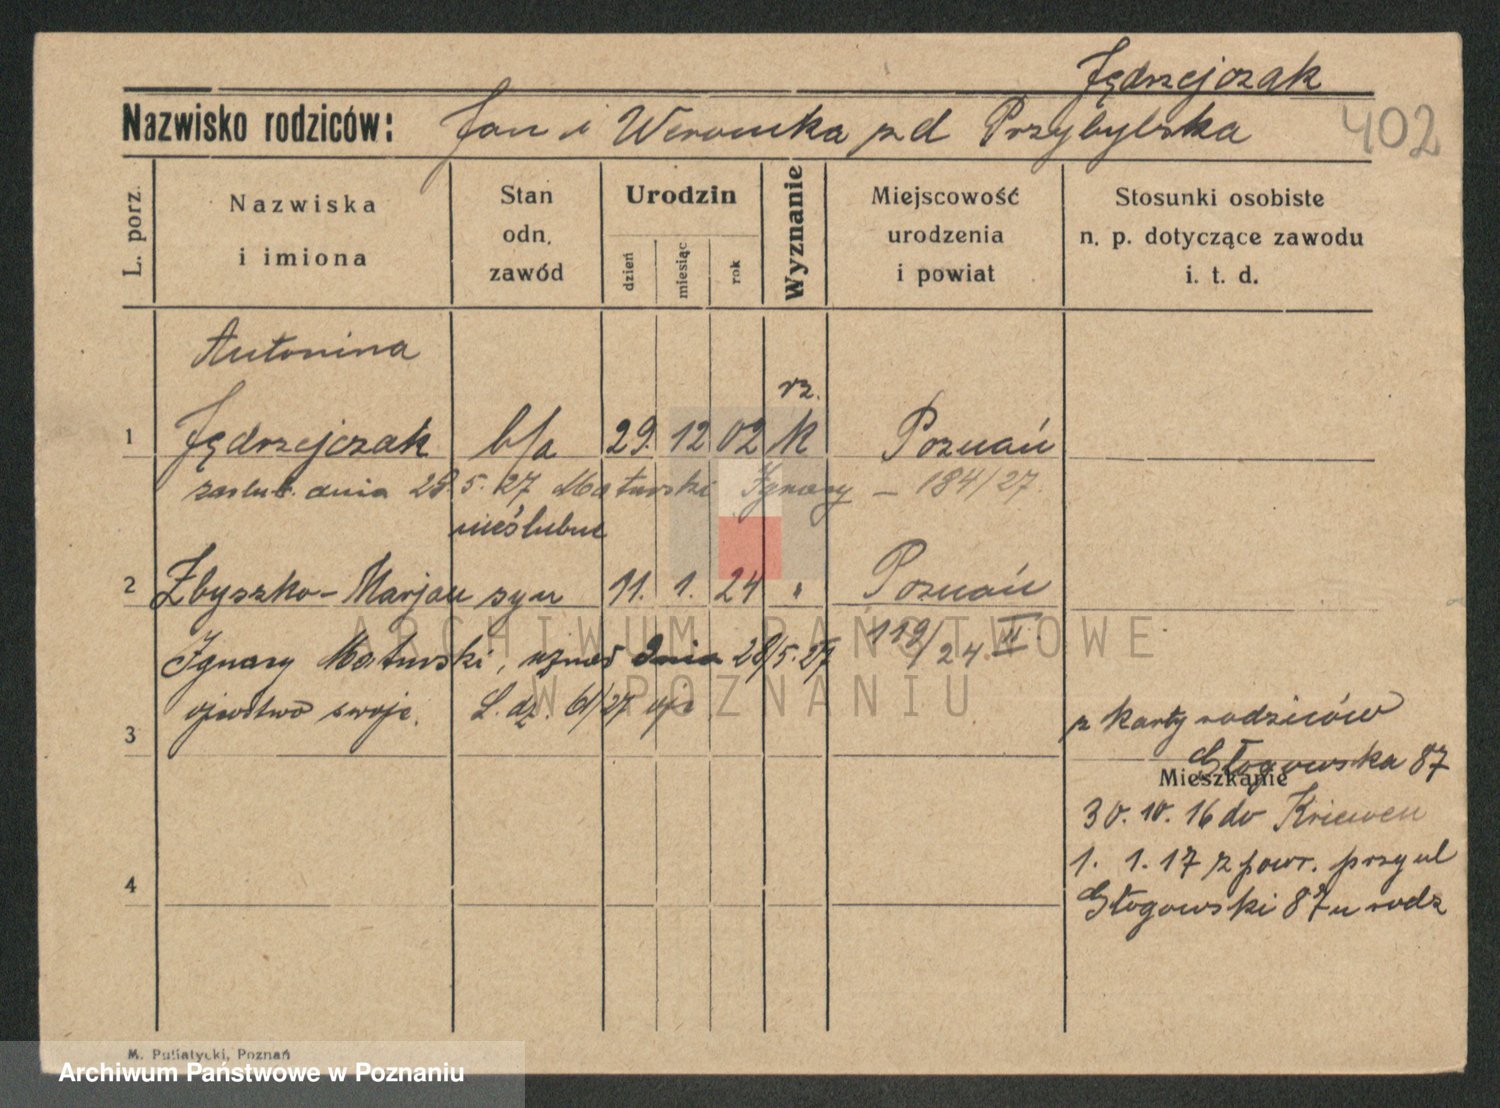 Jędrzejczak
Nazwisko rodziców: Jan i Weronika zd Przybylska
402
L. porz.
Nazwiska
i imiona
Stan
odn.
zawód
Urodzin
dzień
miesiąc
rok
Wyznanie
Miejscowość
urodzenia
i powiat
Stosunki osobiste
n. p. dotyczące zawodu
i. t. d.
Antonina
rz.
1 Jędrzejczak b/a 29. 12 02 K Poznań
zaślub. dnia 28 5. 27 Maturski Ignacy – 184/27
nieślubne
2 Zbyszko-Marjan syn 11. 1. 24 " Poznań
119/24. II
Ignacy Maturski, uznał dnia 28/5. 27
ojcostwo swoje. L. dz. 61/27
3
z karty rodziców
Głogowska 87
Mieszkanie
30. 10. 16 do Kriewen
1. 1. 17 z powr. przy ul
4
Głogowski 87 u rodz
M. Putiatycki, Poznań
ARCHIWUM PAŃSTWOWE
W POZNANIU
Archiwum Państwowe w Poznaniu